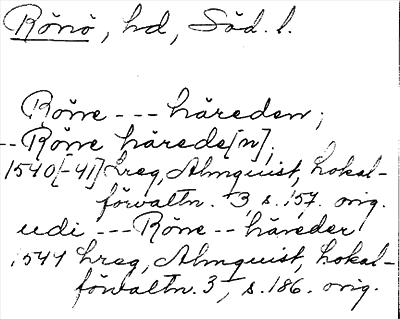 Rönö, hd, Söd. l.
Röne --- häreden;
-- Röne härede[n];
1540[-41] Lreg, Almquist, Lokal-
förvaltn. 3, s. 157. orig.
udi --- Röne -- häreder
1544 Lreg, Almquist, Lokal-
förvaltn. 3, s. 186. orig.